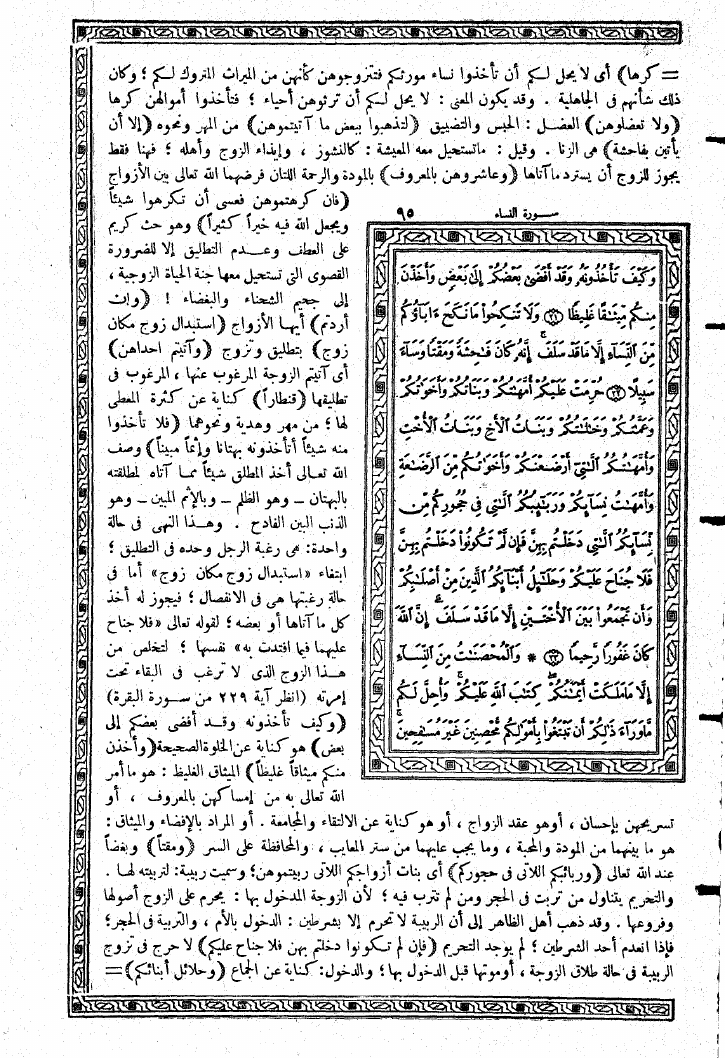 = كرها) أى لا يحل لكم أن تأخذوا نساء مورثكم فتتزوجوهن كأنهن من الميراث المتروك لكم ؛ وكان
ذلك شأنهم فى الجاهلية . وقد يكون المعنى : لا يحل لكم أن ترثوهن أحياء ؛ فتأخذوا أموالهن كرها
(ولا تعضلوهن) العضل : الحبس والتضييق (لتذهبوا ببعض ما آتيتموهن) من المهر ونحوه (إلا أن
يأتين بفاحشة) هى الزنا . وقيل : ما تستحيل معه المعيشة : كالنشوز ، وإيذاء الزوج وأهله ؛ فهنا فقط
يجوز للزوج أن يسترد ما آتاها (وعاشروهن بالمعروف) بالمودة والرحمة اللتان فرضهما الله تعالى بين الأزواج
(فان كرهتموهن فعسى أن تكرهوا شيئاً
ويجعل الله فيه خيراً كثيراً) وهو حث كريم
على العطف وعدم التطليق إلا للضرورة
القصوى التى تستحيل معها جنة الحياة الزوجية ،
إلى جحيم الشحناء والبغضاء ! (وإن
أردتم) أيها الأزواج (استبدال زوج مكان
زوج) بتطليق وتزوج (وآتيتم احداهن)
أى آتيتم الزوجة المرغوب عنها ، المرغوب فى
تطليقها (قنطاراً) كناية عن كثرة المعطى
لها ؛ من مهر وهدية ونحوهما (فلا تأخذوا
منه شيئاً أتأخذونه بهتانا وإثماً مبيناً) وصف
الله تعالى أخذ المطلق شيئاً مما آتاه لمطلقته
بالبهتان ـ وهو الظلم ـ وبالإثم المبين ـ وهو
الذنب البين الفادح . وهذا النهى فى حالة
واحدة: هى رغبة الرجل وحده فى التطليق ؛
ابتغاء «استبدال زوج مكان زوج» أما فى
حالة رغبتها هى فى الانفصال ؛ فيجوز له أخذ
كل ما آتاها أو بعضه ؛ لقوله تعالى «فلا جناح
عليهما فيما افتدت به» نفسها ؛ لتخلص من
هذا الزوج الذى لا ترغب فى البقاء تحت
إمرته (انظر آية ٢٢٩ من سورة البقرة)
(وكيف تأخذونه وقد أفضى بعضكم إلى
بعض) هو كناية عن الخلوة الصحيحة (وأخذن
منكم ميثاقاً غليظاً) الميثاق الغليظ : هو ما أمر
الله تعالى به من إمساكهن بالمعروف ، أو
سورة النساء ٩٥
وَكَيْفَ تَأْخُذُونَهُۥ وَقَدْ أَفْضَىٰ بَعْضُكُمْ إِلَىٰ بَعْضٍ وَأَخَذْنَ
مِنكُم مِّيثَٰقًا غَلِيظًا ﴿٢١﴾ وَلَا تَنكِحُوا۟ مَا نَكَحَ ءَابَآؤُكُم
مِّنَ ٱلنِّسَآءِ إِلَّا مَا قَدْ سَلَفَ ۚ إِنَّهُۥ كَانَ فَٰحِشَةً وَمَقْتًا وَسَآءَ
سَبِيلًا ﴿٢٢﴾ حُرِّمَتْ عَلَيْكُمْ أُمَّهَٰتُكُمْ وَبَنَاتُكُمْ وَأَخَوَٰتُكُمْ
وَعَمَّٰتُكُمْ وَخَٰلَٰتُكُمْ وَبَنَاتُ ٱلْأَخِ وَبَنَاتُ ٱلْأُخْتِ
وَأُمَّهَٰتُكُمُ ٱلَّٰتِىٓ أَرْضَعْنَكُمْ وَأَخَوَٰتُكُم مِّنَ ٱلرَّضَٰعَةِ
وَأُمَّهَٰتُ نِسَآئِكُمْ وَرَبَٰٓئِبُكُمُ ٱلَّٰتِى فِى حُجُورِكُم مِّن
نِّسَآئِكُمُ ٱلَّٰتِى دَخَلْتُم بِهِنَّ فَإِن لَّمْ تَكُونُوا۟ دَخَلْتُم بِهِنَّ
فَلَا جُنَاحَ عَلَيْكُمْ وَحَلَٰٓئِلُ أَبْنَآئِكُمُ ٱلَّذِينَ مِنْ أَصْلَٰبِكُمْ
وَأَن تَجْمَعُوا۟ بَيْنَ ٱلْأُخْتَيْنِ إِلَّا مَا قَدْ سَلَفَ ۗ إِنَّ ٱللَّهَ
كَانَ غَفُورًا رَّحِيمًا ﴿٢٣﴾ * وَٱلْمُحْصَنَٰتُ مِنَ ٱلنِّسَآءِ
إِلَّا مَا مَلَكَتْ أَيْمَٰنُكُمْ ۖ كِتَٰبَ ٱللَّهِ عَلَيْكُمْ ۚ وَأُحِلَّ لَكُم
مَّا وَرَآءَ ذَٰلِكُمْ أَن تَبْتَغُوا۟ بِأَمْوَٰلِكُم مُّحْصِنِينَ غَيْرَ مُسَٰفِحِينَ ۚ
تسريحهن بإحسان ، أو هو عقد الزواج ، أو هو كناية عن الالتقاء والمجامعة . أو المراد بالإفضاء والميثاق :
هو ما بينهما من المودة والمحبة ، وما يجب عليهما من ستر المعايب ، والمحافظة على السر (ومقتاً) وبغضاً
عند الله تعالى (وربائبكم اللاتى فى حجوركم) أى بنات أزواجكم اللاتى ربيتموهن؛ وسميت ربيبة: لتربيته لها .
والتحريم يتناول من تربت فى الحجر ومن لم تترب فيه ؛ لأن الزوجة المدخول بها : يحرم على الزوج أصولها
وفروعها . وقد ذهب أهل الظاهر إلى أن الربيبة لا تحرم إلا بشرطين : الدخول بالأم ، والتربية فى الحجر؛
فإذا انعدم أحد الشرطين ؛ لم يوجد التحريم (فإن لم تكونوا دخلتم بهن فلا جناح عليكم) لا حرج فى تزوج
الربيبة فى حالة طلاق الزوجة ، أو موتها قبل الدخول بها ؛ والدخول: كناية عن الجماع (وحلائل أبنائكم) =